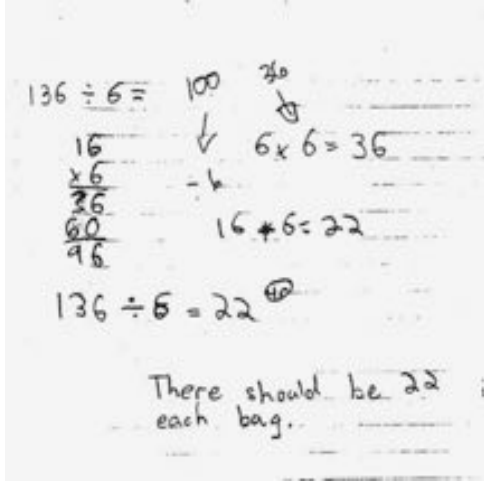 136 ÷ 6 =
100
36
6 x 6 = 36
16
x6
36
60
96
16 + 6 = 22
136 ÷ 6 = 22
There should be 22
each bag.